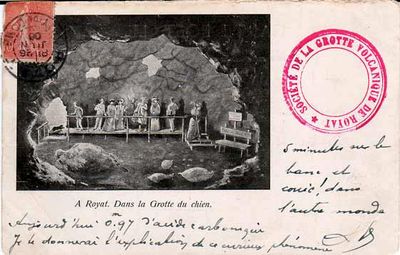 SOCIÉTÉ DE LA GROTTE VOLCANIQUE DE ROYAT
A Royat. Dans la Grotte du chien.
5 minutes sur le
banc, et
couic, dans
l'autre monde
Aujourd'hui 0m.97 d'acide carbonique
Je te donnerai l'explication de ce curieux phénomène